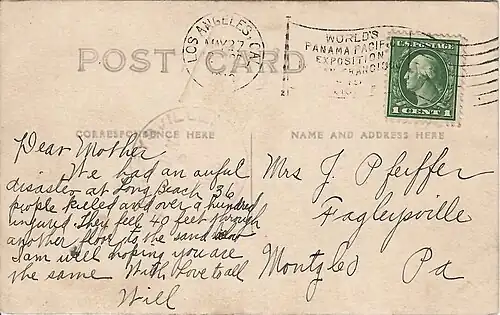 LOS ANGELES, CAL.
MAY 27
WORLD'S
PANAMA PACIFIC
EXPOSITION
U.S. POSTAGE
1 CENT 1
POST CARD
CORRESPONDENCE HERE
NAME AND ADDRESS HERE
Dear Mother
We had an awful
disaster at Long Beach 36
people killed and over a hundred
injured. They feel 40 feet through
another floor to the sand below
I am well hoping you are
the same With Love to all
Will
Mrs J. Pfeiffer
Fagleysville
Montg Co Pa